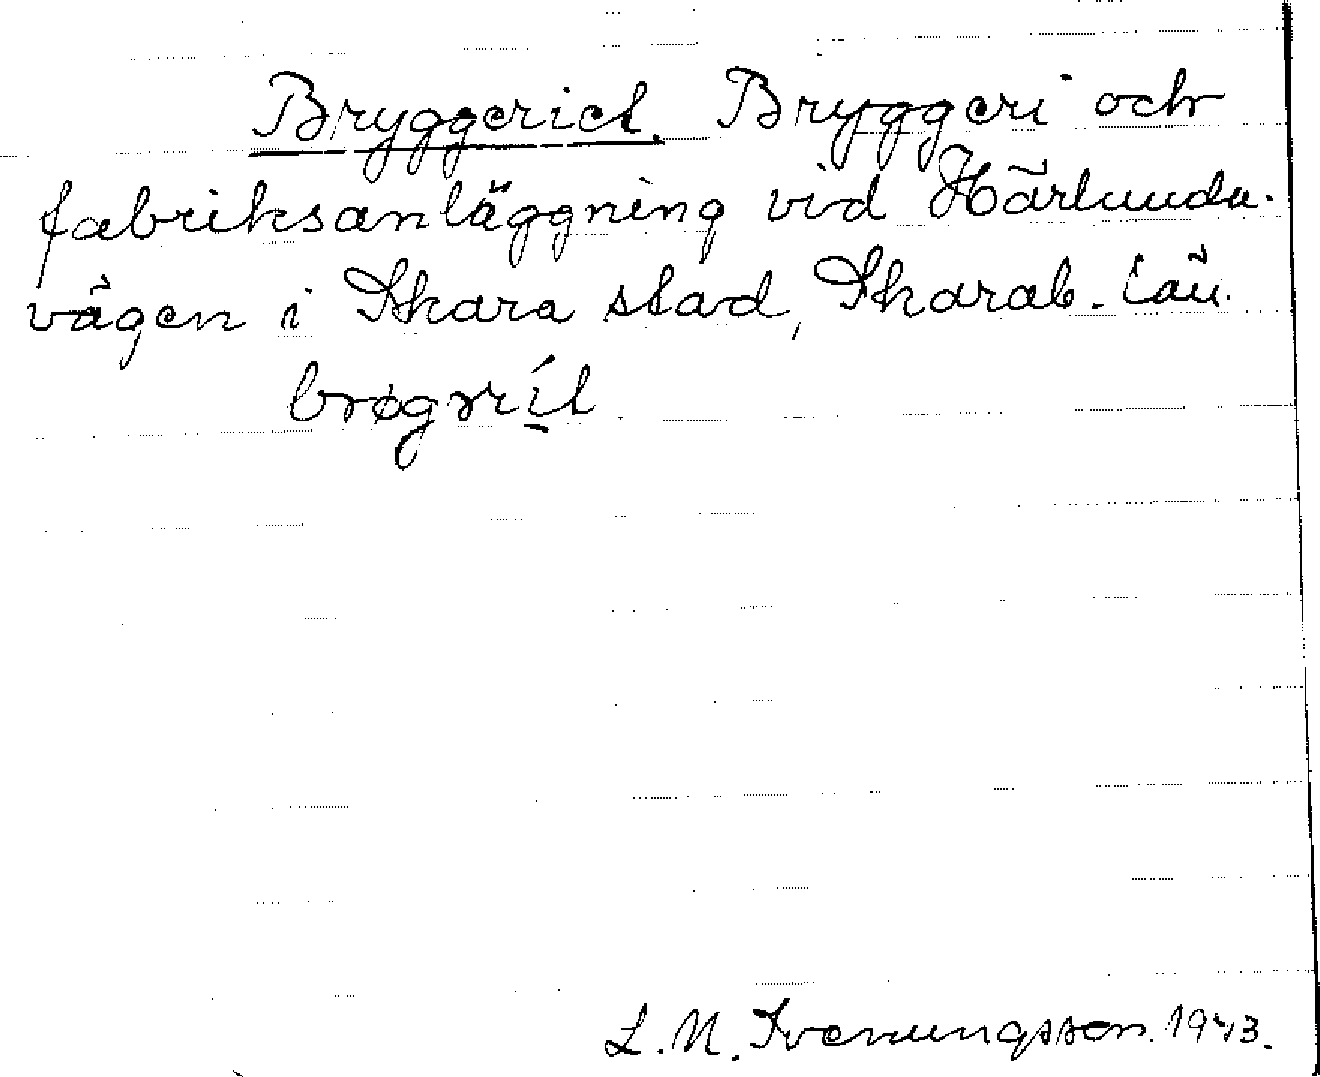 Bryggeriet. Bryggeri och
fabriksanläggning vid Härlunda-
vägen i Skara stad, Skarab. län.
brøgrít
L. N. Svenungsson. 1943.